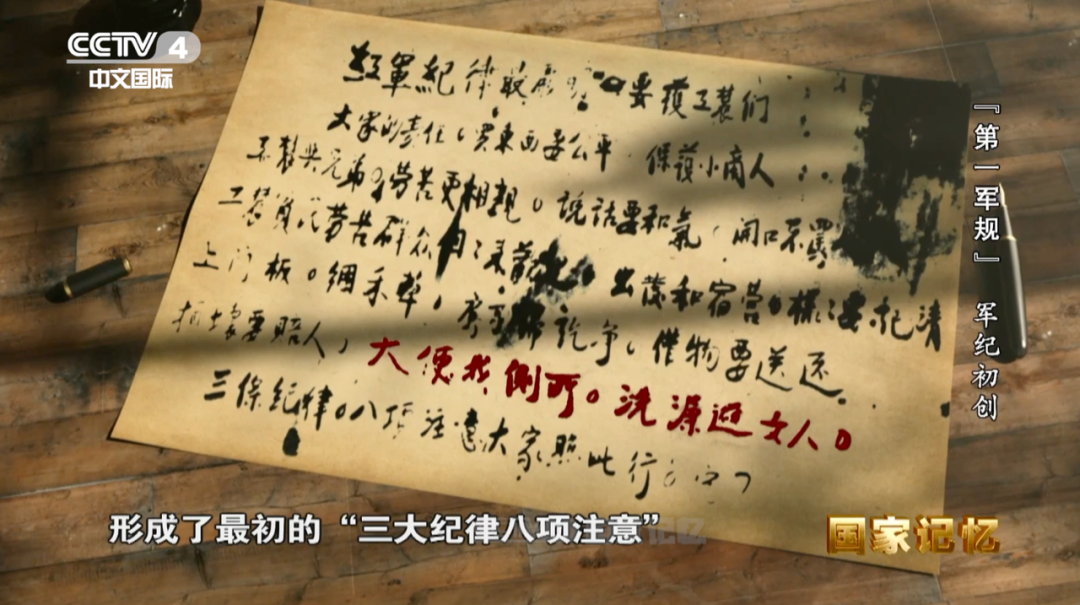 CCTV 4
中文国际
『第一军规』 军纪初创
红軍紀律最 要 護工農们
大家的責任，買東西要公平 保護小商人
兄弟。劳苦更相親。說話要和氣，開口不罵
工農 劳苦群众 出發和宿營。樣樣要記清
上门板。綑禾草， 訖争，借物要送还
损壞要賠人，大便找側所。洗澡避女人。
三條紀律。八項注意大家照此行
形成了最初的“三大纪律八项注意”
国家记忆